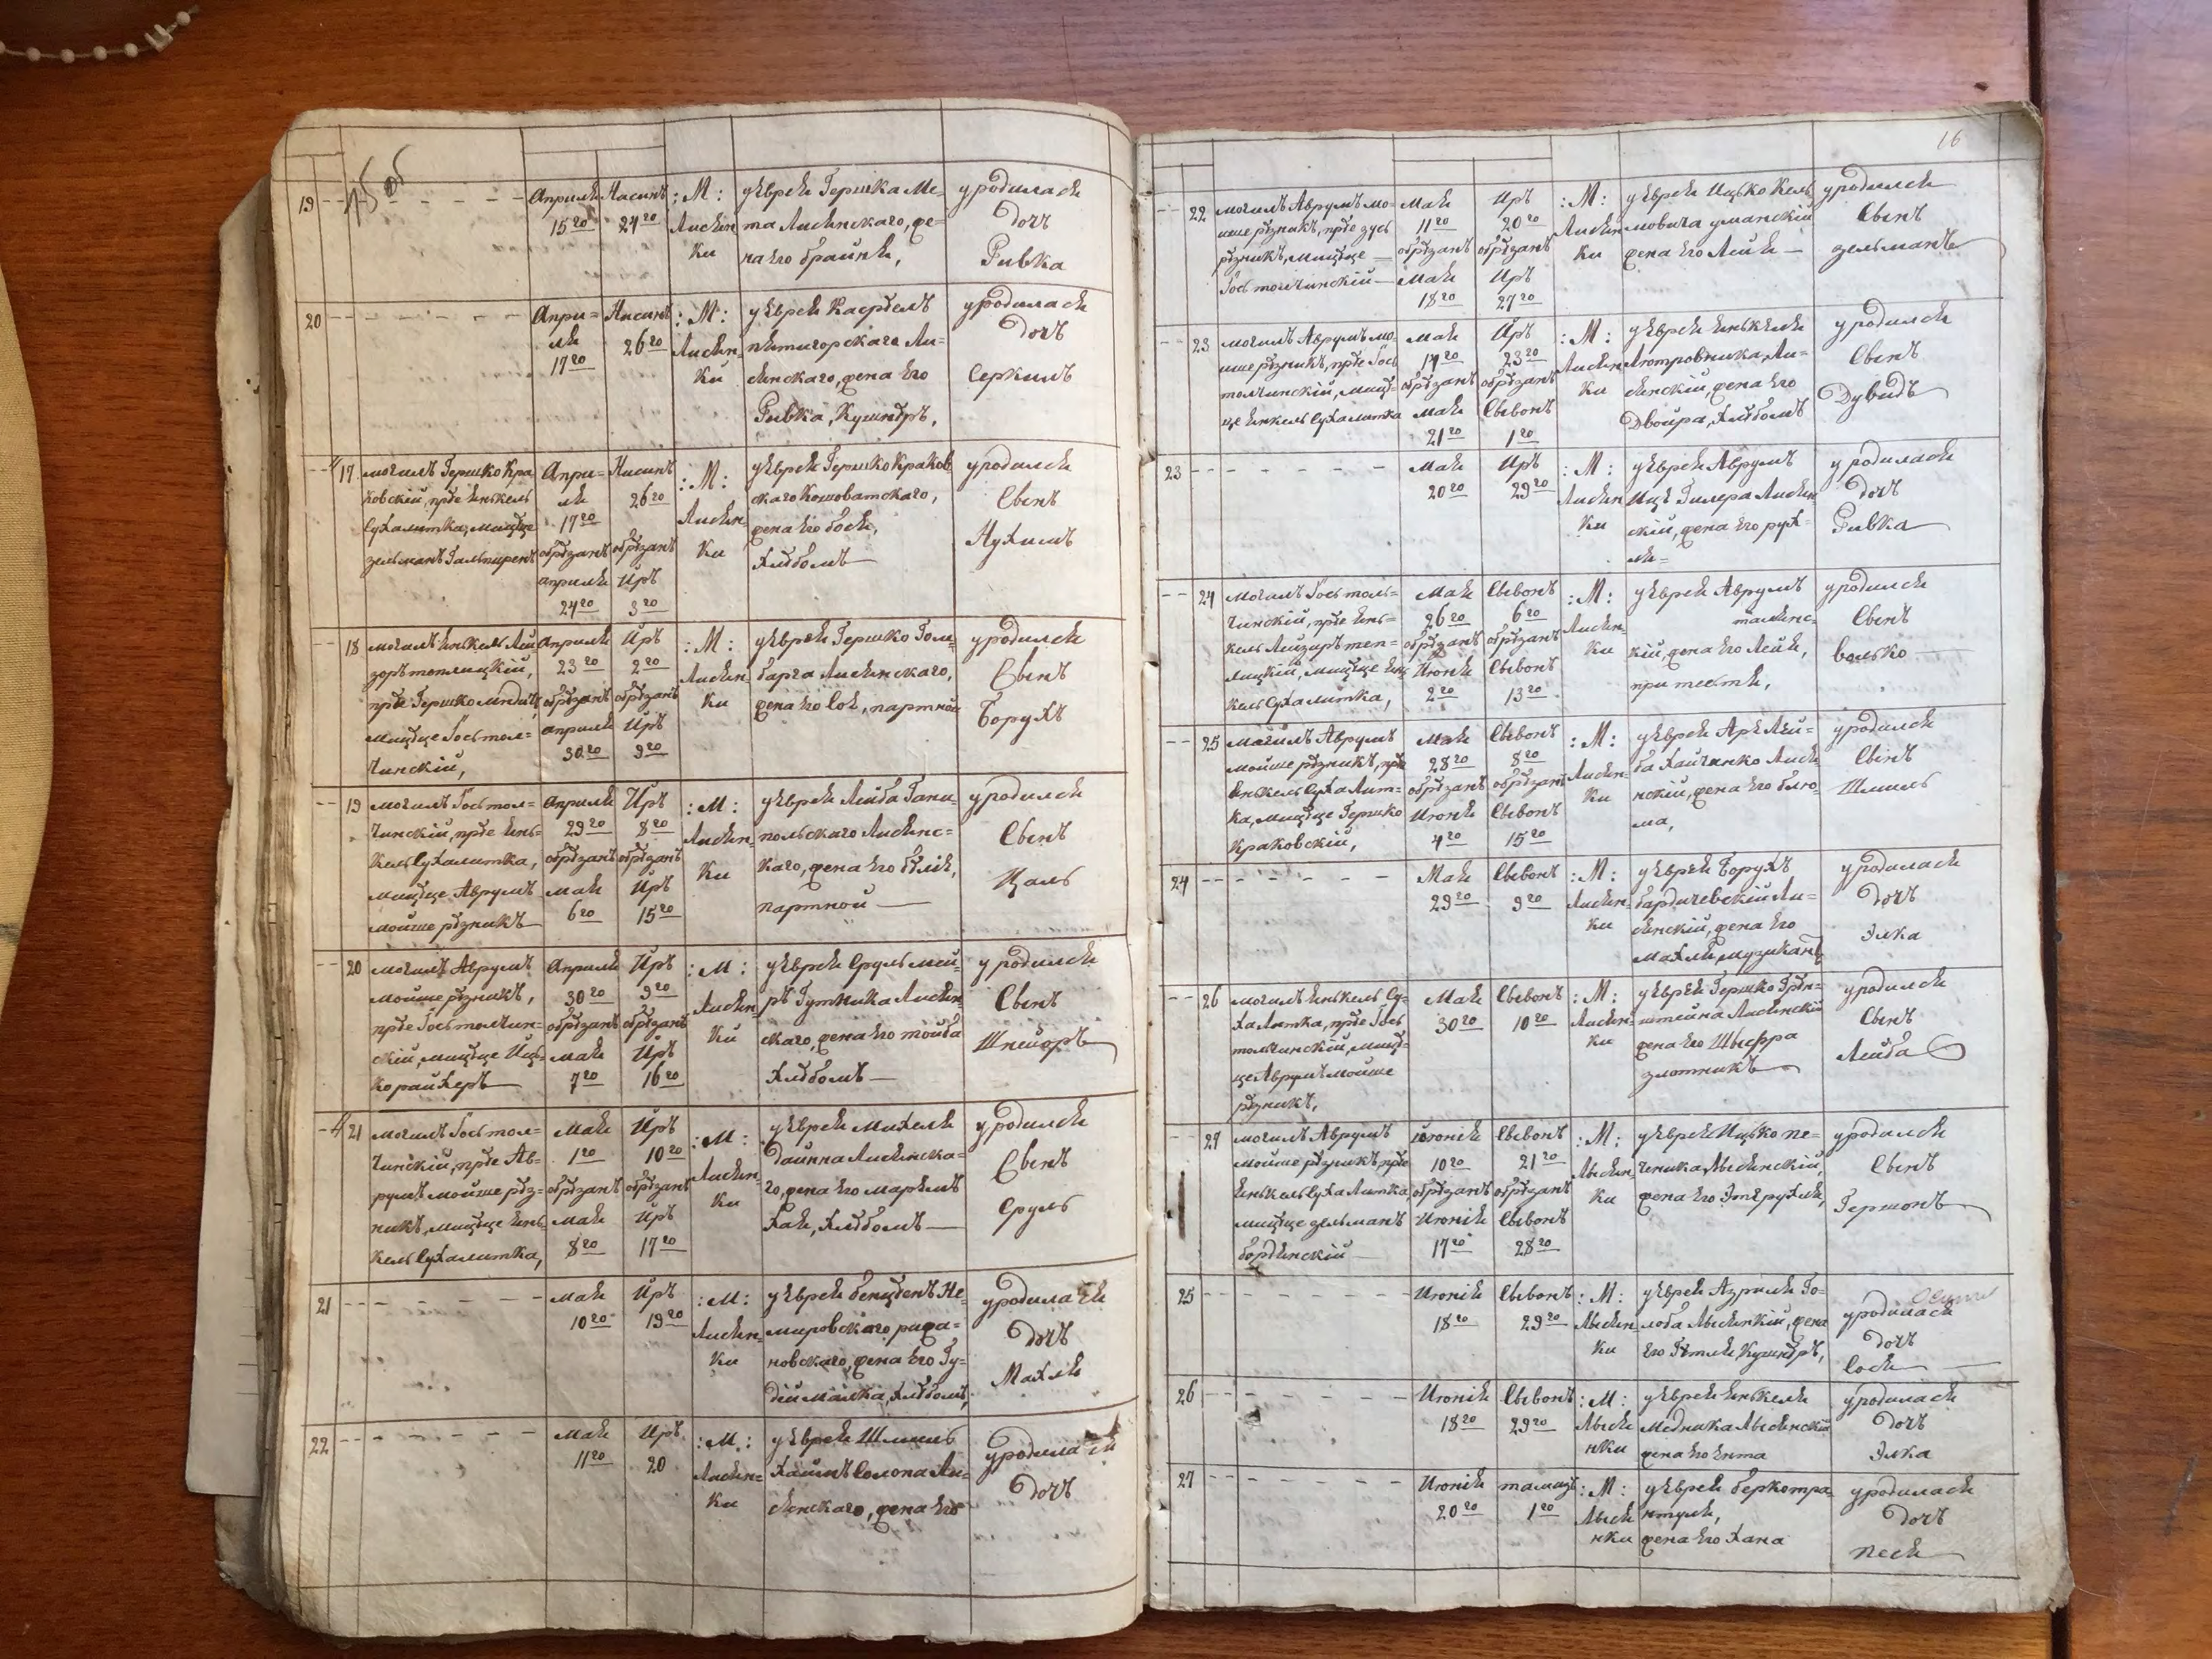 19
Апреля
15го
Нисинъ
24го
:М:
Лисян
ки
у Еврея Гершка Ме-
та Лисянскаго, же-
на Его брайня,
уродилася
Дочъ
Ривка
20
Апре=
ля
17го
Нисинъ
26го
:М:
Лисян-
ки
у Еврея
пятигорскаго Ли-
сянскаго, жена Его
Ривка, Кушнѣръ,
уродилася
дочъ
17
могилъ Гершко Кра
ковскій, прѣе Янькель
Сухалитка, мицвце
зельманъ
Апре-
ля
17го
обрѣзанъ
апреля
24го
Нисинъ
26го
обрѣзанъ
Иръ
3го
:М:
Лисян-
ки
у Еврея Гершко Краков
скаго
жена Его бося,
Хлѣбомъ
уродилси
Сынъ
Нухимъ
18
могилъ Янькель Лей
зоръ теплицкій,
прѣе Гершко
мицвце Іось тол=
чинскій,
Апреля
23го
обрѣзанъ
апреля
30го
Иръ
2го
обрѣзанъ
Иръ
9го
:М:
Лисян-
ки
у Еврея Гершко Голи
барга Лисянскаго,
жена Его Сося, партной
уродилси
Сынъ
Борухъ
19
могилъ Іось тол=
чинскій, прѣе Янь=
кель Сухалитка,
мицвце Аврумъ
мойше рѣзникъ
Апреля
29го
обрѣзанъ
мая
6го
Иръ
8го
обрѣзанъ
Иръ
15го
:М:
Лисян-
ки
у Еврея Лейба Гани-
польскаго Лисянс=
каго, жена Его
партной
уродилси
Сынъ
Цаль
20
могилъ Аврумъ
мойше рѣзникъ,
прѣе Іось толчин=
скій, мицвце Иць-
ко райхеръ
Апреля
30го
обрѣзанъ
мая
7го
Иръ
9го
обрѣзанъ
Иръ
16го
:М:
Лисян-
ки
у Еврея Сруль Мей-
ръ Гутника Лисян
скаго, жена Его тойба
Хлѣбомъ
уродилси
Сынъ
Шнейоръ
21
могилъ Іось тол=
чинскій, прѣе Ав=
румъ мойше рѣз=
никъ, мицвце Янь
кель Сухалитка,
Мая
1го
обрѣзанъ
Мая
8го
Иръ
10го
обрѣзанъ
Иръ
17го
:М:
Лисян-
ки
у Еврея Михеля
Дайнна Лисянска=
го, жена Его Марямъ
Хая, Хлѣбомъ
уродилси
Сынъ
Сруль
21
мая
10го
Иръ
19го
:М:
Лисян-
ки
у Еврея бенціенъ Не-
мировскаго рижа=
новскаго, жена Его Гу=
дій Малка, Хлѣбомъ,
уродилася
дочъ
Махля
22
мая
11го
Иръ
20
:М:
Лисян=
ки
у Еврея Шмиль
Хаимъ Солона Ли=
сянскаго, жена Его
уродилася
дочъ
16
22
могилъ Аврумъ мо-
йше рѣзникъ, прѣе зусь
рѣзникъ, мицвце
Іось толчинскій
Мая
11го
обрѣзанъ
Мая
18го
Иръ
20го
обрѣзанъ
Иръ
27го
:М:
Лисян
ки
у Еврея Ицько Кель
мовича уманскій
жена Его Лейя
уродилси
Сынъ
зельманъ
23
могилъ Аврумъ мо-
йше рѣзникъ, прѣе Іось
толчинскій, мицв-
це Янкель Сухалитка
мая
14го
обрѣзанъ
Мая
21го
Иръ
23го
обрѣзанъ
Сывонъ
1го
:М:
Лисян
ки
у Еврея Янькеля
Ли=
сянскій, жена Его
Двойра, Хлѣбомъ
уродилси
Сынъ
Дувидъ
23
Мая
20го
Иръ
29го
:М:
Лисян
ки
у Еврея Аврумъ
Ицъ Гилера Лисян
скій, жена Его рух-
ля=
уродилася
дочъ
Ривка
24
могилъ Іось толь=
чинскій, прѣе Янь=
кель Лейзиръ теп=
лицкій, мицвце Ян
кель Сухалитка,
Мая
26го
обрѣзанъ
Июня
2го
Сывонъ
6го
обрѣзанъ
Сывонъ
13го
:М:
Лисян-
ки
у Еврея Аврумъ
талянс-
кій, жена Его Лейя,
при тестѣ,
уродилси
Сынъ
волько
25
могилъ Аврумъ
мойше рѣзникъ, прѣе
Янькель Сухалит=
ка, мицвце Гершко
Краковскій,
Мая
28го
обрѣзанъ
Июня
4го
Сывонъ
8го
обрѣзанъ
Сывонъ
15го
:М:
Лисян-
ки
у Еврея Аръ Лей=
ба Хайченко Лися
нскій, жена Его блю=
ма,
уродилси
Сынъ
Шмиль
24
Мая
29го
Сывонъ
9го
:М:
Лисян-
ки
у Еврея Борухъ
бардичевскій Ли=
сянскій, жена Его
Махля, музикантъ
уродилася
дочъ
Элка
26
могилъ Янькель Су-
халитка, прѣе Іось
толчинскій, мицв-
це Аврумъ мойше
рѣзникъ,
Мая
30го
Сывонъ
10го
:М:
Лисян-
ки
у Еврея Гершко Грѣн-
штейна Лисянскій
жена Его Шыфра
злотникъ
уродилси
Сынъ
Лейба
27
могилъ Аврумъ
мойше рѣзникъ, прѣе
Янькель Сухалитка
мицвце зельманъ
Июня
10го
обрѣзанъ
Июня
17го
Сывонъ
21го
обрѣзанъ
Сывонъ
28го
:М:
Лысян-
ки
у Еврея Ицько пе-
ченика Лысянскій,
жена Его Этя рухля,
уродилси
Сынъ
Гершонъ
25
Июня
18го
Сывонъ
29го
:М:
Лысян-
ки
у Еврея Азриля Го-
лоба Лысянкій, жена
Его Гитля, Кушнѣръ,
уродилася
дочъ
Сося
26
Июня
18го
Сывонъ
29го
:М:
Лыся
нки
у Еврея Янькеля
Медника Лысянскій
жена Его Ента
уродилася
дочъ
Элка
27
Июня
20го
тамузъ
1го
:М:
Лыся
нки
у Еврея берко тра-
нтуля,
жена Его Хана
уродилася
дочъ
песя